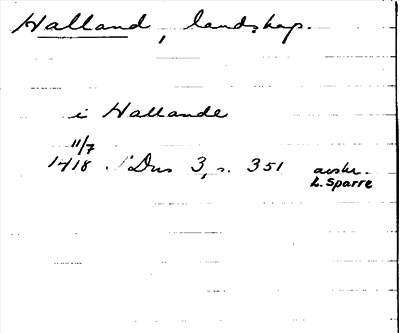 Halland, landskap.
i Hallande
11/7
1418 Dns 3, s. 351 avskr.
L. Sparre